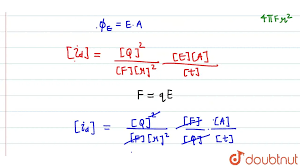 ϕ_E = E.A
4πFr²
[i_d] = [Q]² / [F][r]² [E][A] / [t]
F = qE
[i_d] = [Q]² / [F][r]² [F] / [Q] . [A] / [t]
doubtnut